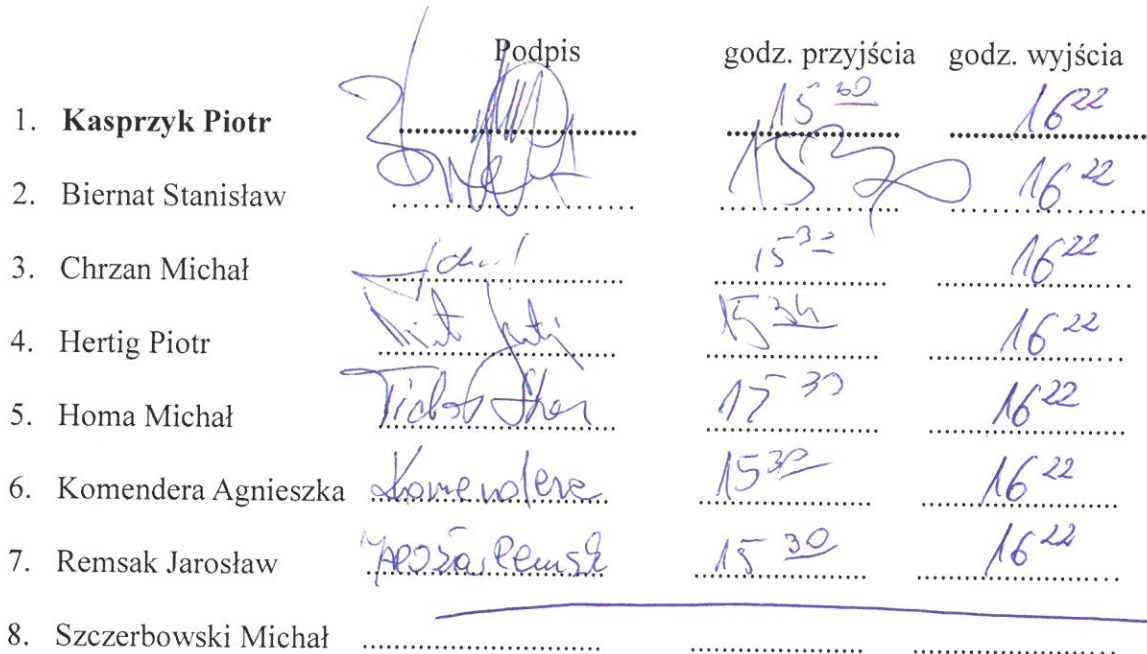 Podpis godz. przyjścia godz. wyjścia
1. Kasprzyk Piotr 15 30 16 22
2. Biernat Stanisław 15 30 16 22
3. Chrzan Michał 15 30 16 22
4. Hertig Piotr 15 34 16 22
5. Homa Michał 15 30 16 22
6. Komendera Agnieszka Komendera 15 30 16 22
7. Remsak Jarosław 15 30 16 22
8. Szczerbowski Michał